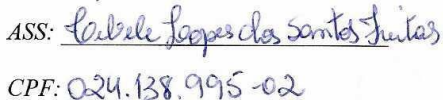 ASS: Cibele Lopes dos Santos Freitas
CPF: 024.138.995-02